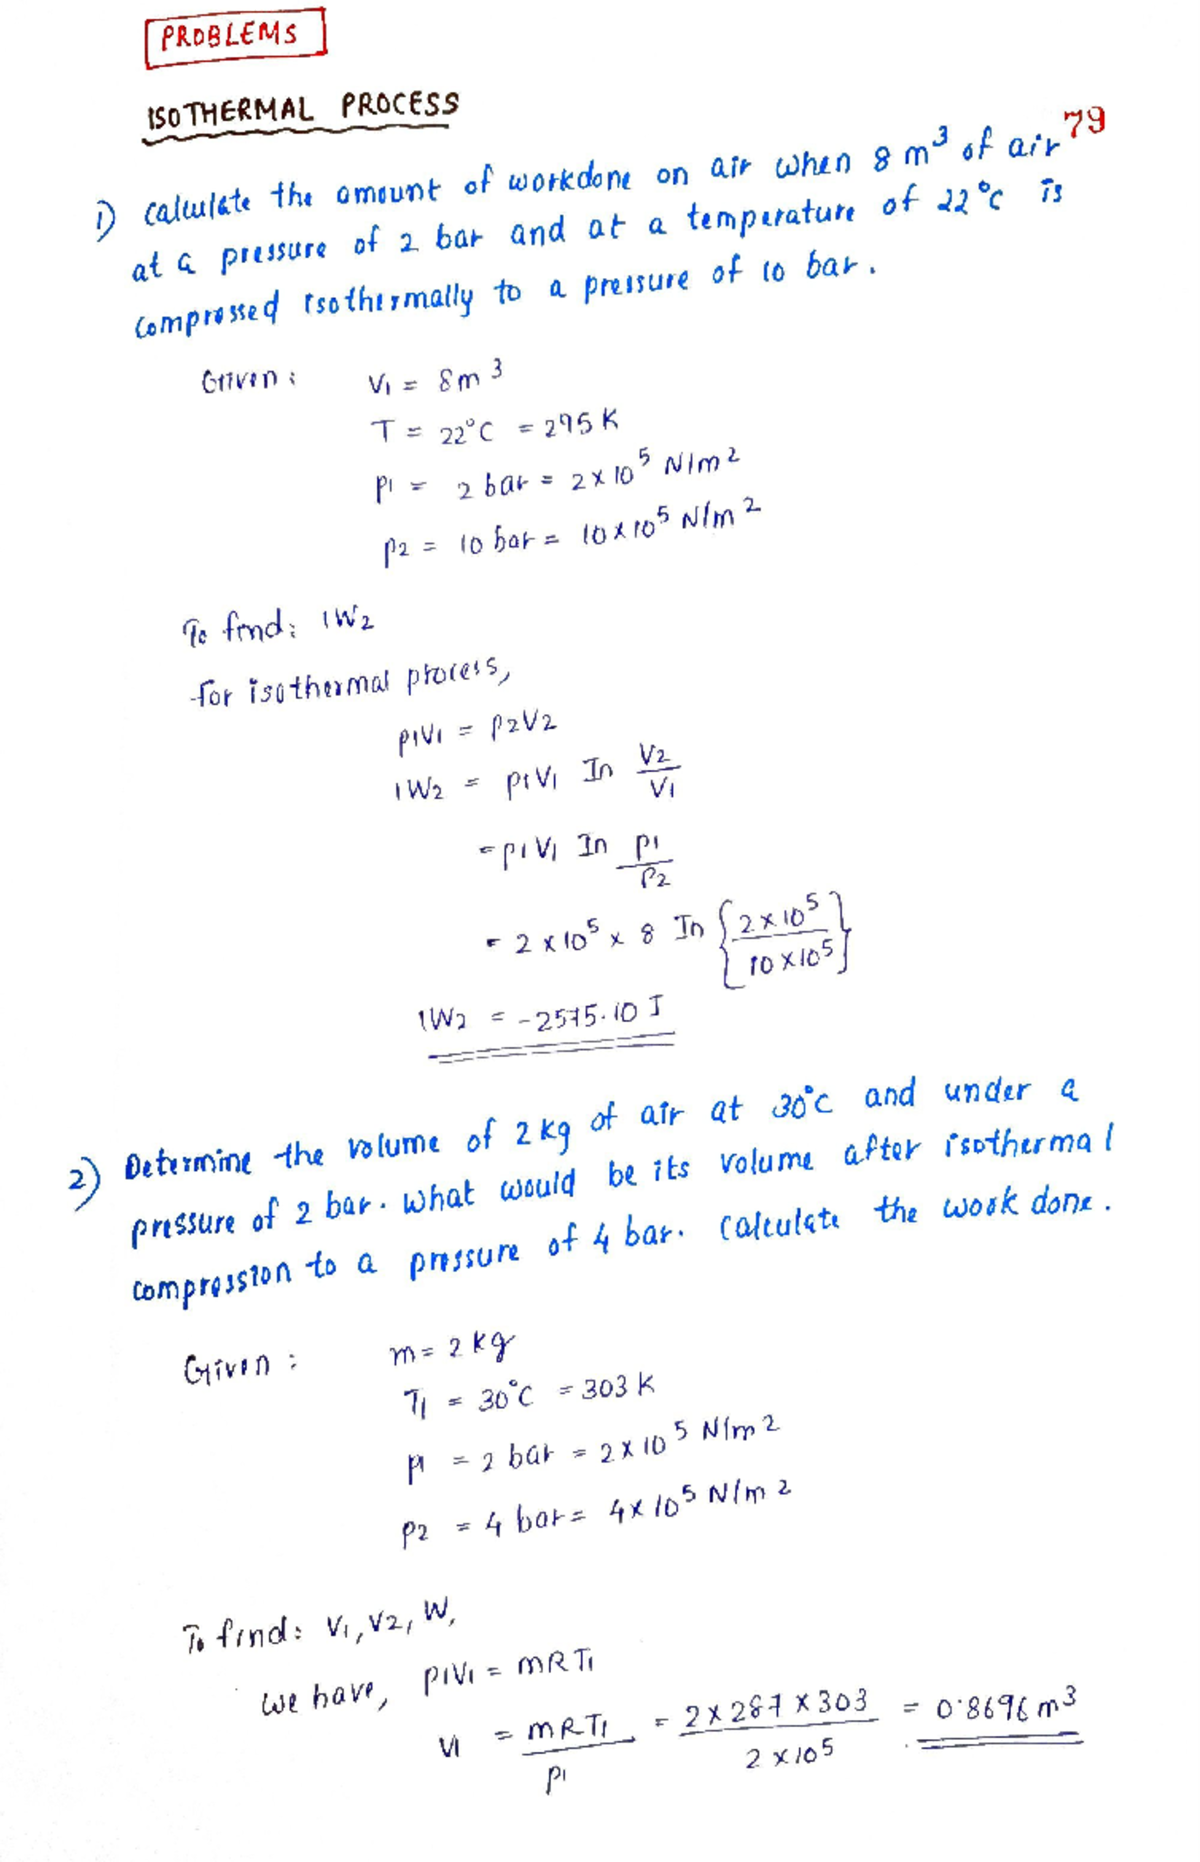 PROBLEMS
ISOTHERMAL PROCESS
79
1) calculate the amount of workdone on air when 8 m³ of air
at a pressure of 2 bar and at a temperature of 22°C is
compressed isothermally to a pressure of 10 bar.
Given: V1 = 8m³
T = 22°C = 295 K
P1 = 2 bar = 2 x 10⁵ N/m²
P2 = 10 bar = 10 x 10⁵ N/m²
To find: 1W2
for isothermal process,
P1V1 = P2V2
1W2 = P1V1 In V2/V1
= P1V1 In P1/P2
= 2 x 10⁵ x 8 In {2 x 10⁵ / 10 x 10⁵}
1W2 = -2575.10 J
2) Determine the volume of 2 kg of air at 30°C and under a
pressure of 2 bar. What would be its volume after isothermal
compression to a pressure of 4 bar. calculate the work done.
Given: m = 2 kg
T1 = 30°C = 303 K
P1 = 2 bar = 2 x 10⁵ N/m²
P2 = 4 bar = 4 x 10⁵ N/m²
To find: V1, V2, W,
we have, P1V1 = mRT1
V1 = mRT1/P1 = 2 x 287 x 303 / 2 x 10⁵ = 0.8696 m³